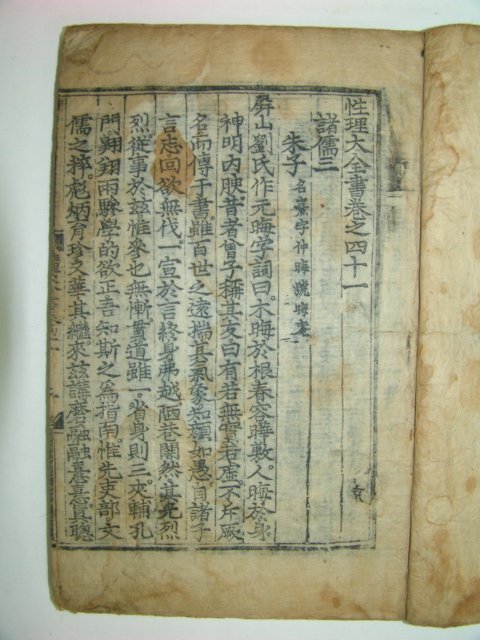 性理大全書卷之四十一
諸儒三
朱子 名熹字仲晦號晦菴
屏山劉氏作元晦字詞曰木晦於根春容曄敷人晦於身
神明內腴昔者曾子稱其友曰有若無實若虛不斥厥
名而傳于書雖百世之遠揣其氣象知顏如愚自諸子
言志回欲無伐一宣於言終身弗越陋巷闇然其光烈
烈從事於玆惟參也無慚貫道雖一省身則三夾輔孔
門翱翔兩驂學的欲正吾知斯之爲指南惟先吏部文
儒之粹彪炳育珍又華其繼來玆講磨融融熹熹眞聰